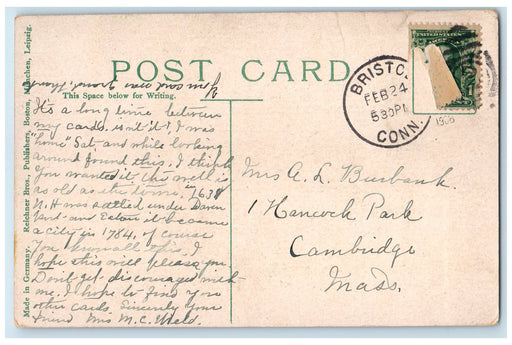 POST CARD
This Space below for Writing.
It's a long time between
my cards, isn't it? I was
"home" Sat. and while looking
around found this. I think
You wanted it. This well is
as old as the town. in 1638
N.H was settled under Daven
port and Eaton it became
a city in 1784, of course
You know all this. I
hope this will please you
Don't get discouraged with
me. I hope to find you
other cards. Sincerely Your
Friend Mrs M.C. Weld.
Made in Germany. Reichner Bros. Publishers, Boston, München, Leipzig.
BRISTO
FEB 24
5 30 P
CONN.
1906
Mrs A. L. Burbank.
1 Hancock Park
Cambridge
Mass.